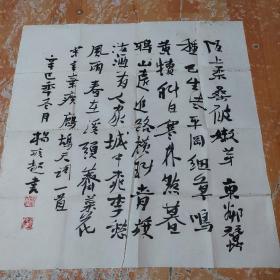 陌上柔桑破嫩芽东邻蚕
种已生些平冈细草鸣
黄犊斜日寒林点暮
鸦山远近路横斜青旗
沽酒有人家城中桃李愁
风雨春在溪头荠菜花
宋辛弃疾鹧鸪天词一首
辛巳年冬月